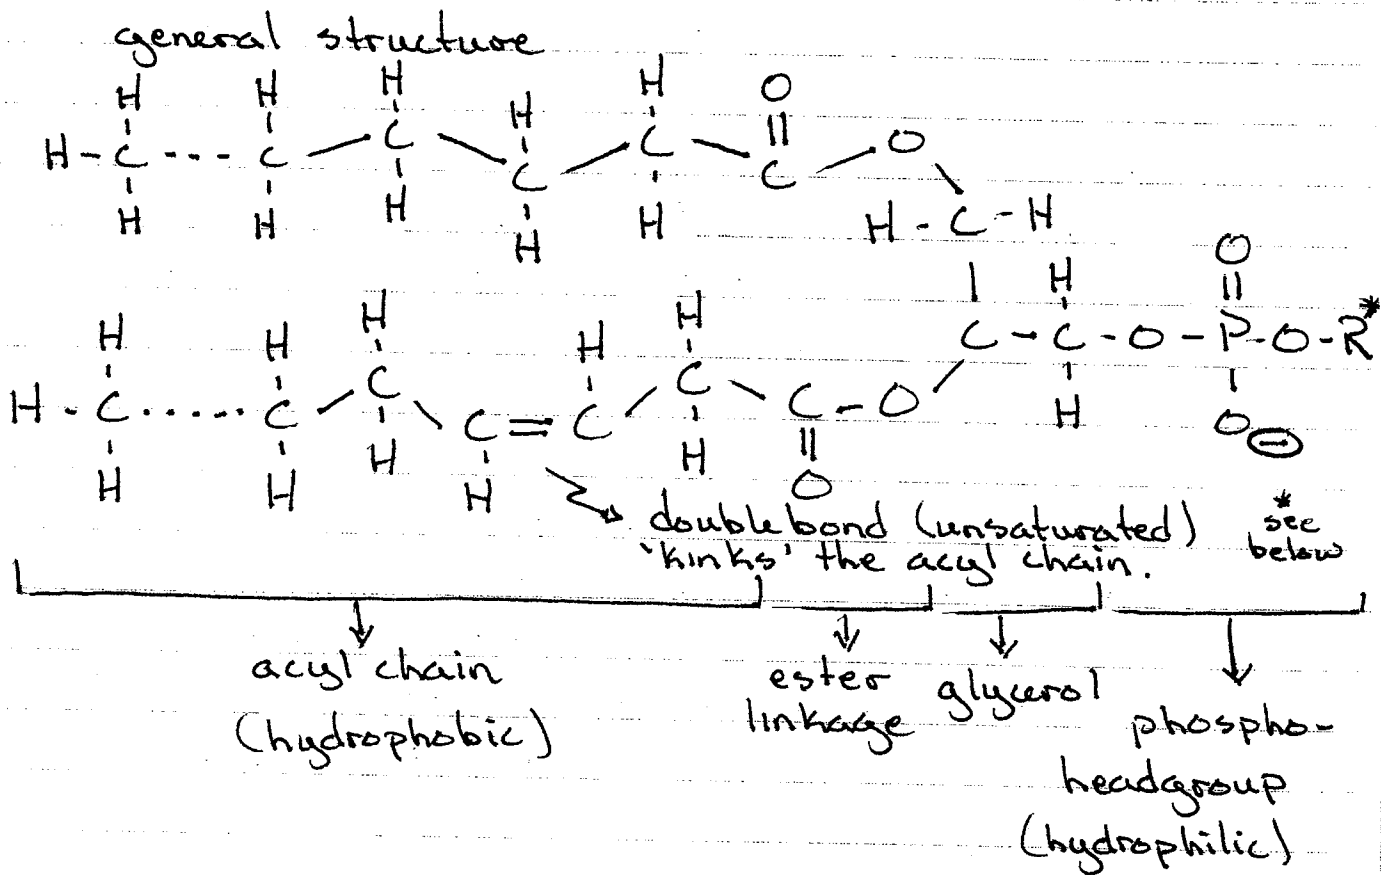 general structure
H H H H H O
H-C---C C C C C O
H H H H H H-C-H
H H H H H H O
H-C.....C C C=C C C-O C-C-O-P-O-R*
H H H H H O H O⊖
double bond (unsaturated)
'kinks' the acyl chain.
* see
below
acyl chain
(hydrophobic)
ester
linkage
glycerol
phospho-
headgroup
(hydrophilic)